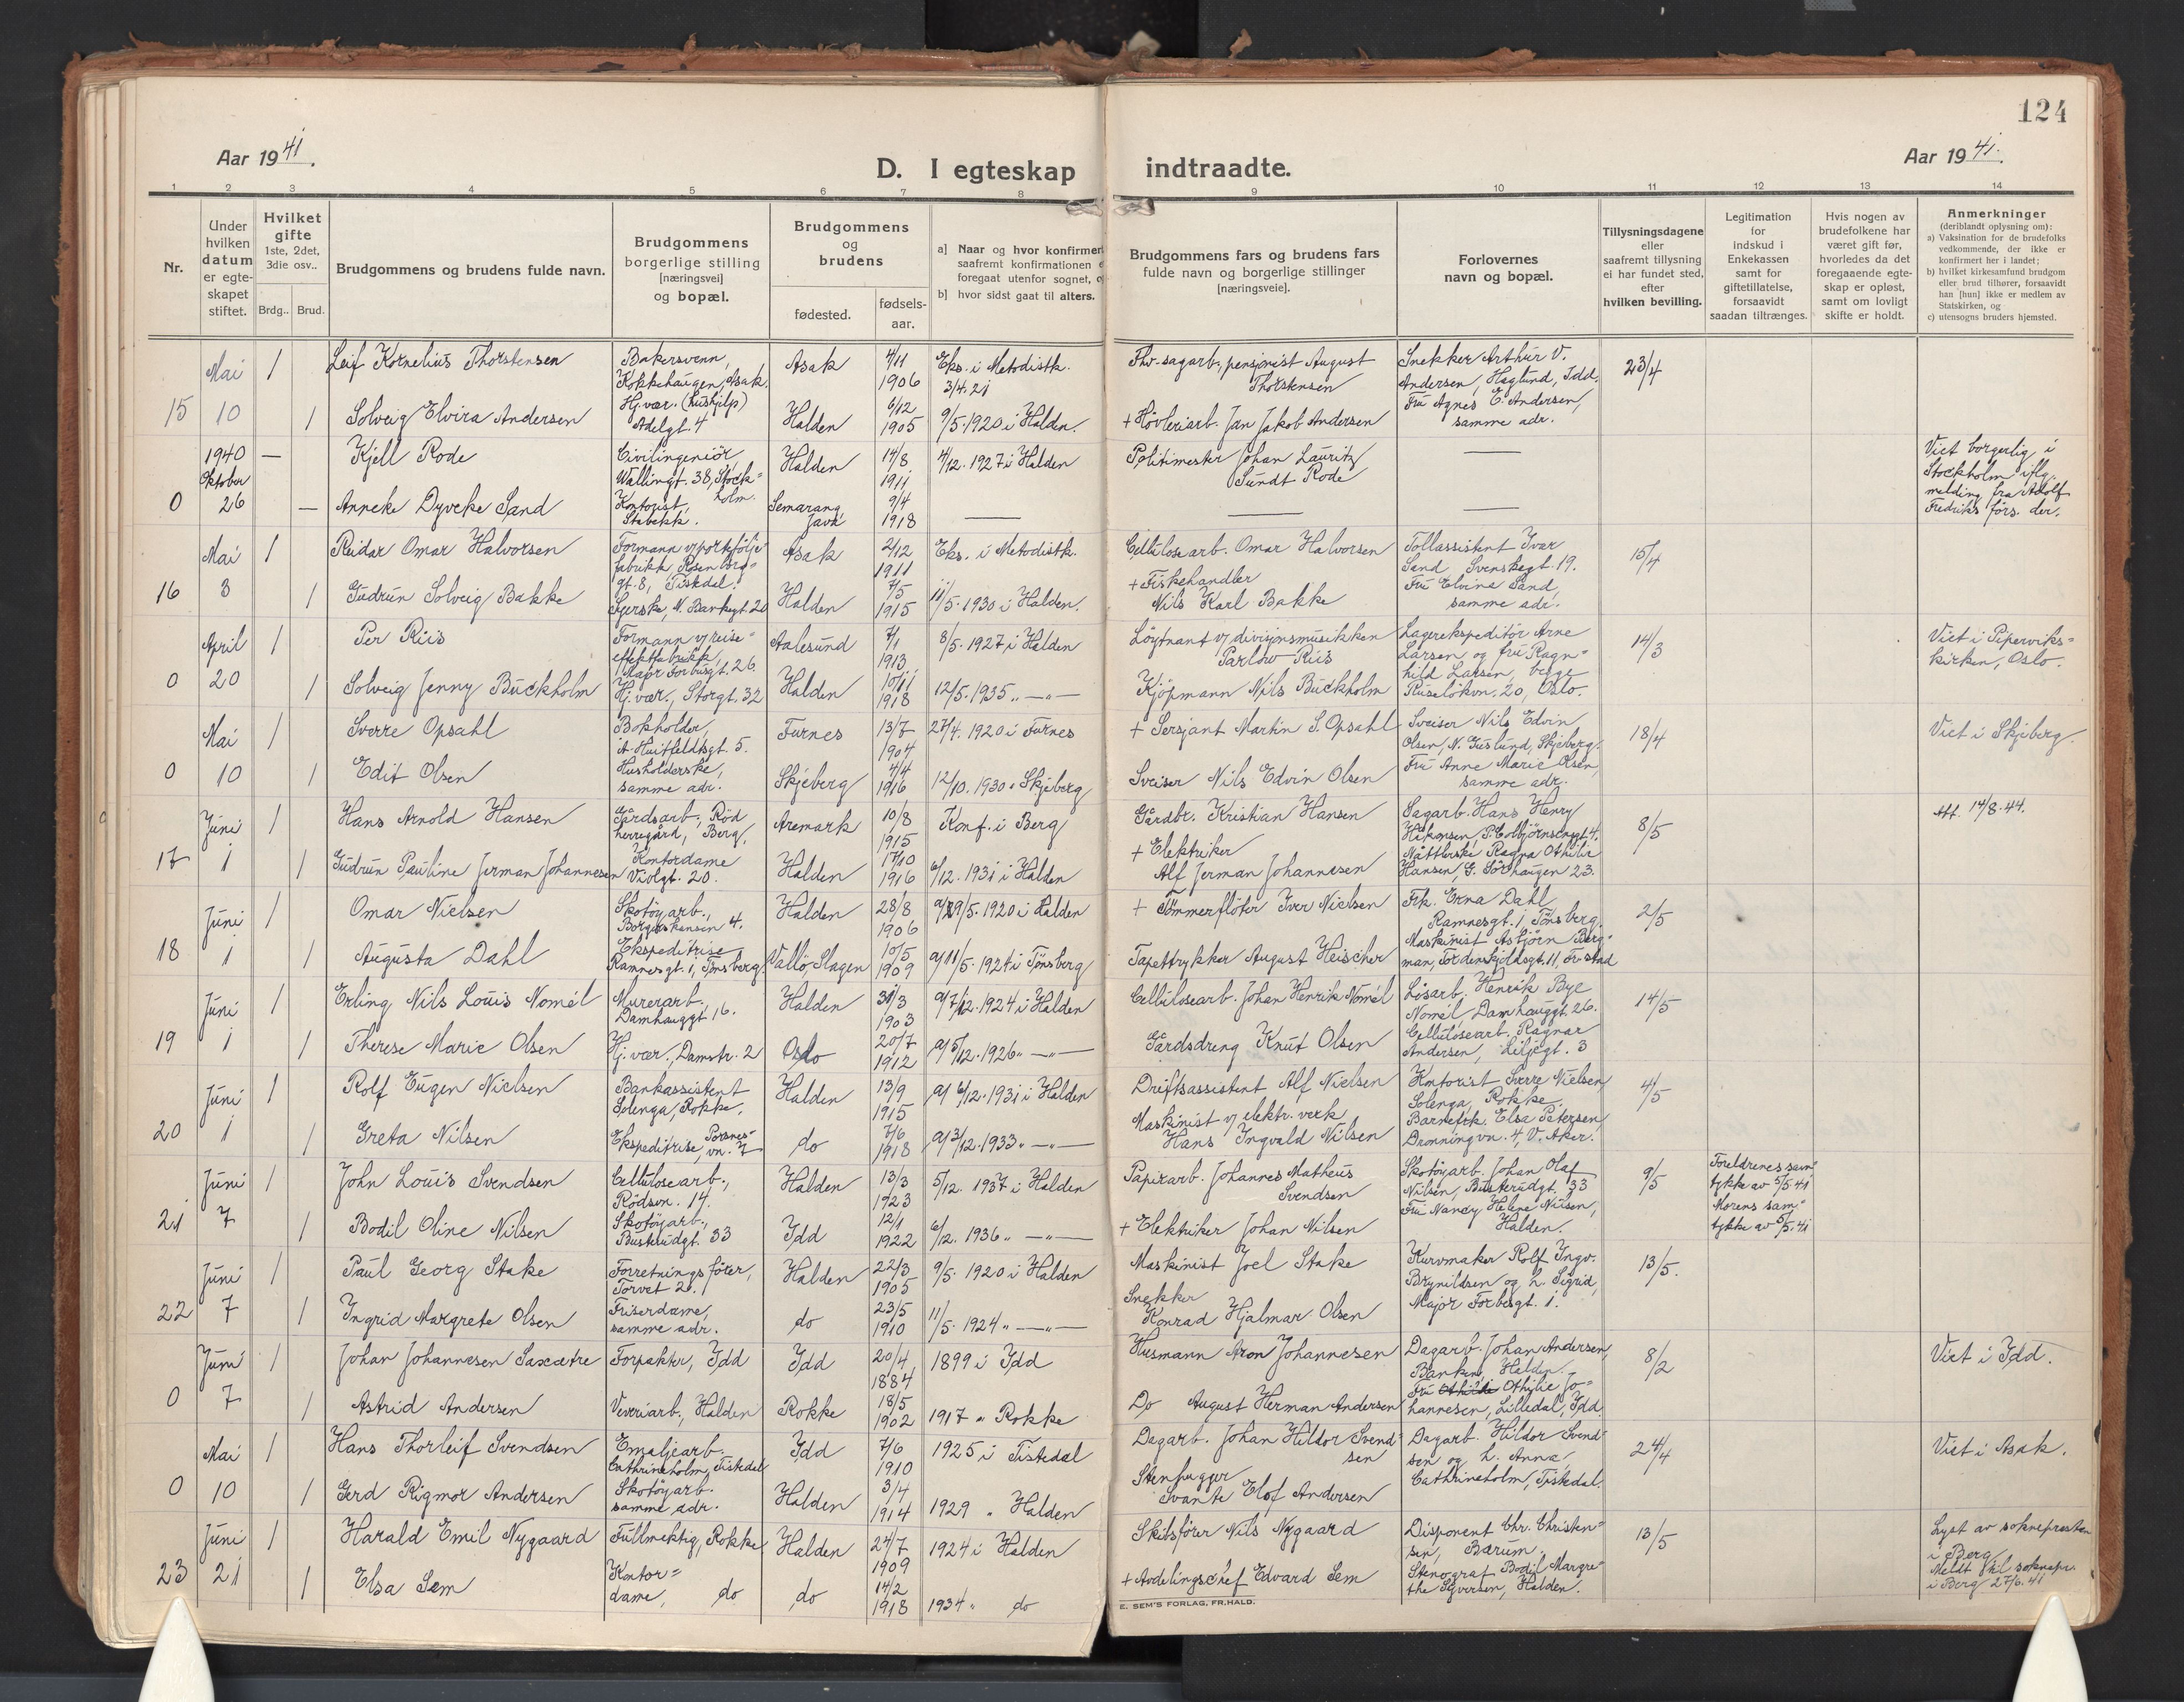 124
Aar 1941.
Aar 1941.
D. I egteskap indtraadte.
1 2 3 4 5 6 7 8 9 10 11 12 13 14
Nr.
Under hvilken datum er egteskapet stiftet.
Hvilket gifte 1ste, 2det, 3die osv..
Brdg.. Brud.
Brudgommens og brudens fulde navn.
Brudgommens borgerlige stilling [næringsvei] og bopæl.
Brudgommens og brudens
fødested.
fødsels-aar.
a] Naar og hvor konfirmert
saafremt konfirmationen
foregaat utenfor sognet,
b] hvor sidst gaat til alters.
Brudgommens fars og brudens fars fulde navn og borgerlige stillinger [næringsveie].
Forlovernes navn og bopæl.
Tillysningsdagene eller saafremt tillysning ei har fundet sted, efter hvilken bevilling.
Legitimation for indskud i Enkekassen samt for giftetillatelse, forsaavidt saadan tiltrænges.
Hvis nogen av brudefolkene har været gift før, hvorledes da det foregaaende egteskap er opløst, samt om lovligt skifte er holdt.
Anmerkninger
(deriblandt oplysning om):
a) Vaksination for de brudefolks vedkommende, der ikke er konfirmert her i landet;
b) hvilket kirkesamfund brudgom eller brud tilhører, forsaavidt han [hun] ikke er medlem av Statskirken, og
c) utensogns bruders hjemsted.
15 Mai 10 1 Leif Kornelius Thorstensen Bakersvenn, Kokkehaugen, Asak. Asak 4/11 1906 Eks. i Metodistk. 3/4.21 Fhv. sagarb., pensjonist August Thorstensen Snekker Arthur V. Andersen, Haglund, Idd. 23/4
1 Solveig Elvira Andersen Hj. vær. (hushjelp) Adelgt. 4 Halden 6/12 1905 9/5.1920 i Halden. + Høvleriarb. Jan Jakob Andersen Fru Agnes E. Andersen, samme adr.
0 1940 Oktober 26 — Kjell Rode Civilingeniör, Wallingt. 38, Stockholm. Halden 14/8 1911 4/12.1927 i Halden Politimester Johan Lauritz Sundt Rode — Viet borgerlig i Stockholm iflg. melding fra Adolf Fredriks förs. der.
— Anneke Dyveke Sand Kontorist, Stabekk. Semarang, Java 9/4 1918 — — —
16 Mai 3 1 Reidar Omar Halvorsen Formann v/portefölje-fabrikk, Rosenborg-gt. 8, Tistedal. Asak 2/12 1911 Eks. i Metodistk. Cellulosearb. Omar Halvorsen Tollassistent Ivar Sand Svenskegt. 19. 15/4
1 Gudrun Solveig Bakke Syerske, N. Bankegt. 20 Halden 7/5 1915 11/5.1930 i Halden. + Fiskehandler Nils Karl Bakke Fru Elvine Sand, samme adr.
0 April 20 1 Per Riis Formann v/ reise-effektfabrikk, Major Forbusgt. 26. Aalesund 7/1 1913 8/5.1927 i Halden Löytnant v/ divisjonsmusikken Parlow Riis Lagerekspeditör Arne Larsen og fru Ragnhild Larsen, begge Ruselökvn. 20, Oslo. 14/3 Viet i Piperviks-kirken, Oslo.
1 Solveig Jenny Buckholm Hj. vær., Storgt. 32 Halden 10/11 1918 12/5.1935 „ —„— Kjöpmann Nils Buckholm
0 Mai 10 1 Sverre Opsahl Bokholder, A. Huitfeldtsgt. 5. Furnes 13/7 1904 27/4.1920 i Furnes + Sersjant Martin S. Opsahl Sveiser Nils Edvin Olsen, N. Guslund, Skjeberg. 18/4 Viet i Skjeberg.
1 Edit Olsen Husholderske, samme adr. Skjeberg 4/4 1916 12/10.1930 „ Skjeberg Sveiser Nils Edvin Olsen Fru Anne Marie Olsen, samme adr.
17 Juni 1 1 Hans Arnold Hansen Gårdsarb., Röd herregård, Berg, Aremark 10/8 1915 Konf. i Berg Gårdbr. Kristian Hansen Sagarb. Hans Henry Håkonsen, P. Colbjörnsensgt. 4. 8/5 Att. 14/8.44.
1 Gudrun Pauline Jerman Johannesen Kontordame Violgt. 20. Halden 17/10 1916 6/12.1931 i Halden + Elektriker Alf Jerman Johannesen Ragna Othilie Hansen, G. Sörhaugen 23.
18 Juni 1 1 Omar Nielsen Skotöyarb., Borgerskansen 4. Halden 28/8 1906 a/29/5.1920 i Halden + Tömmerflöter Iver Nielsen Frk. Erna Dahl Ramnesgt. 1, Tönsberg. 2/5
1 Augusta Dahl Ekspeditrise Ramnesgt. 1, Tönsberg. Vallö, Slagen 10/5 1909 a/11/5.1924 i Tönsberg Tapettrykker August Heischer Maskinist Asbjörn Bergman, Tordenskjoldsgt. 11, Fr.stad
19 Juni 1 1 Erling Nils Louis Nomél Murerarb., Damhauggt. 16. Halden 31/3 1903 a/7/12.1924 i Halden Cellulosearb. Johan Henrik Nomél Lösarb. Henrik Bye Nomél, Damhauggt. 26. 14/5
1 Therese Marie Olsen Hj. vær., Damstr. 2 Oslo 20/7 1912 a/5/12.1926 „ —„— Gårdsdreng Knut Olsen Cellulosearb. Ragnar Andersen, Liljegt. 3
20 Juni 1 1 Rolf Eugen Nielsen Bankassistent Solenga, Rokke. Halden 13/9 1915 a/ 6/12.1931 i Halden Driftsassistent Alf Nielsen Kontorist Sverre Nielsen, Solenga, Rokke. 4/5
1 Greta Nilsen Ekspeditrise, vn. 7 do 7/6 1918 a/3/12.1933 „ —„— Maskinist v/ elektr. verk Hans Ingvald Nilsen Barnefrk. Elsa Petersen, Dronningvn. 4, V. Aker.
21 Juni 7 1 John Louis Svendsen Cellulosearb., Rödsvn. 14. Halden 13/3 1923 5/12.1937 i Halden Papirarb. Johannes Matheus Svendsen Skotöyarb. Johan Olaf Nilsen, Busterudgt. 33 9/5 Foreldrenes samtykke av 5/5.41
1 Bodil Oline Nilsen Skotöyarb., Busterudgt. 33 Idd 12/1 1922 6/12.1936 „ —„— + Elektriker Johan Nilsen Fru Nancy Helene Nilsen, Halden. Morens samtykke av 5/5.41
22 Juni 7 1 Paul Georg Stake Forretningsförer, Torvet 2. Halden 22/3 1905 9/5.1920 i Halden Maskinist Joel Stake Kurvmaker Rolf Ingv. Brynildsen og h. Sigrid, Major Forbusgt. 1. 13/5.
1 Ingrid Margrete Olsen Friserdame, samme adr. do 23/5 1910 11/5.1924 „ —„— Snekker Konrad Hjalmar Olsen
0 Juni 7 1 Johan Johannesen Saxætre Forpakter, Idd Idd 20/4 1884 1899 i Idd Husmann Aron Johannesen Dagarb. Johan Andersen, Banken, Halden. 8/2 Viet i Idd.
1 Astrid Andersen Veveriarb., Halden Rokke 18/5 1902 1917 „ Rokke Do August Herman Andersen Fru Othilie Johannesen, Lilledal, Idd.
0 Mai 10 1 Hans Thorleif Svendsen Emaljearb. Cathrineholm, Tistedal Idd 7/6 1910 1925 i Tistedal Dagarb. Johan Hildor Svendsen Dagarb. Hildor Svendsen og h. Anna, Cathrineholm, Tistedal. 24/4 Viet i Asak.
1 Gerd Rigmor Andersen Skotöyarb. samme adr. Halden 3/4 1914 1929 „ Halden Stenhugger Svante Elof Andersen
23 Juni 21 1 Harald Emil Nygaard Fullmektig, Rokke Halden 24/7 1909 1924 i Halden Skibsförer Nils Nygaard Disponent Chr. Christensen, Bærum. 13/5 Lyst av soknepresten i Berg Meldt til soknepr. i Berg 27/6.41
1 Elsa Sem Kontordame, do do 14/2 1918 1934 „ do + Avdelingschef Edvard Sem Stenograf Bodil Margrethe Syversen, Halden.
E. SEM'S FORLAG, FR.HALD.